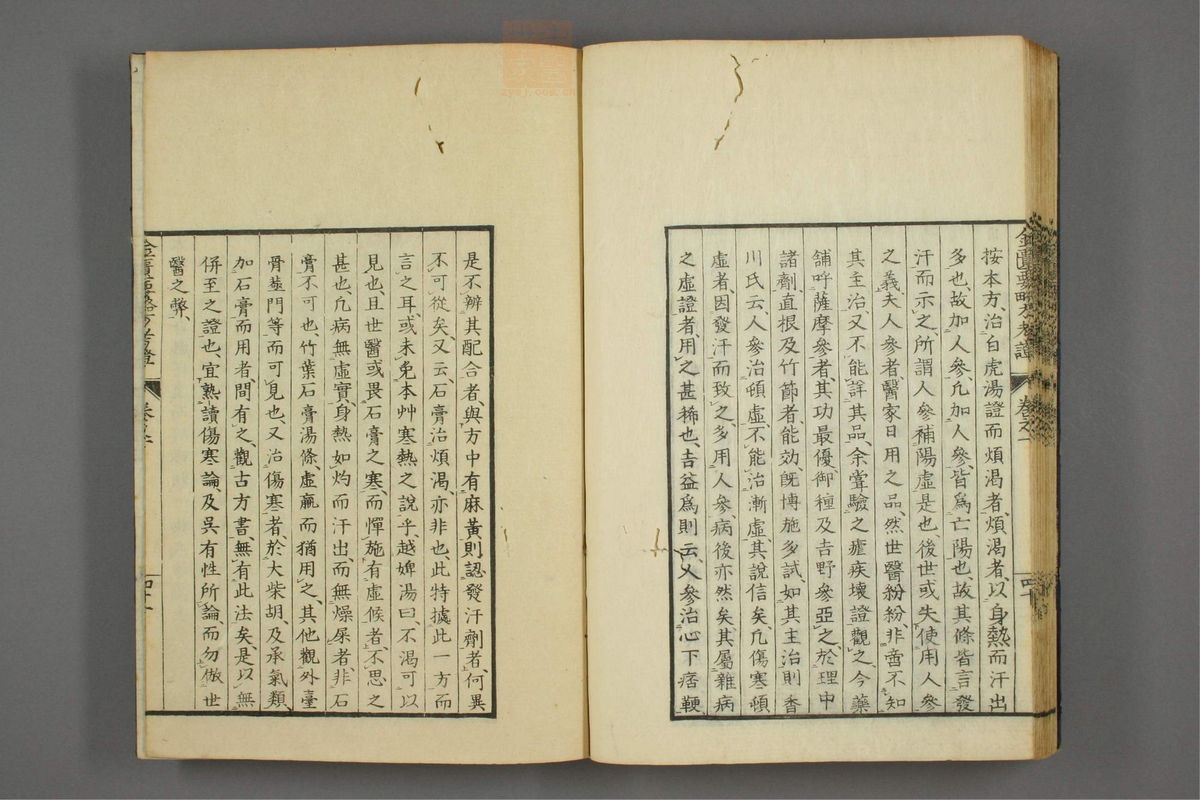 按本方、治白虎湯證而煩渴者、煩渴者、以身熱而汗出
多也、故加人參、凢加人參、皆爲亡陽也、故其條皆言發
汗而示之、所謂人參補陽虛是也、後世或失使用人參
之義、夫人參者、醫家日用之品、然世醫紛紛、非啻不知
其主治、又不能詳其品、余嘗驗之瘧疾壞證觀之、今藥
舖呼薩摩參者、其功最優、御種及吉野參亞之、於理中
諸劑、直根及竹節者、能効、旣博施多試、如其主治、則香
川氏云、人參治頓虛、不能治漸虛、其說信矣、凢傷寒頓
虛者、因發汗而致之、多用人參、病後亦然矣、其屬雜病
之虛證者、用之甚稀也、吉益爲則云、人參治心下痞鞕
是不辨其配合者、與方中有麻黃、則認發汗劑者、何異
不可從矣、又云、石膏治煩渴、亦非也、此特據此一方而
言之耳、或未免本艸寒熱之說乎、越婢湯曰、不渴可以
見也、且世醫或畏石膏之寒、而憚施有虛候者、不思之
甚也、凢病無虛實、身熱如灼而汗出、而無燥屎者、非石
膏不可也、竹葉石膏湯條、虛羸而猶用之、其他觀外臺
骨蒸門等而可見也、又治傷寒者、於大柴胡、及承氣類、
加石膏而用者、間有之、觀古方書、無有此法矣、是以無
併至之證也、宜熟讀傷寒論、及吳有性所論、而勿倣世
醫之弊、